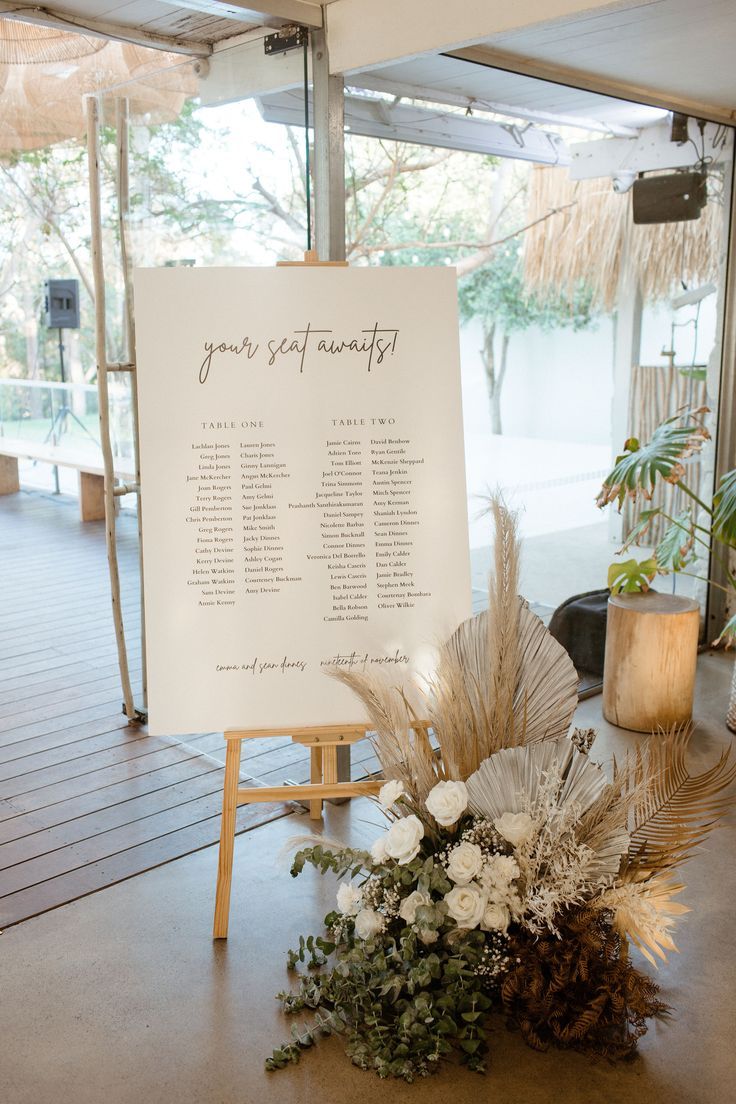 your seat awaits!
TABLE ONE
Lachlan Jones
Greg Jones
Linda Jones
Jane McKercher
Joan Rogers
Terry Rogers
Gill Pemberton
Chris Pemberton
Greg Rogers
Fiona Rogers
Cathy Devine
Kerry Devine
Helen Watkins
Graham Watkins
Sam Devine
Annie Kenny
Lauren Jones
Charis Jones
Ginny Lannigan
Angus McKercher
Paul Gelmi
Amy Gelmi
Sue Jonklaas
Pat Jonklaas
Mike Smith
Jacky Dinnes
Sophie Dinnes
Ashley Cogan
Daniel Rogers
Courteney Buckman
Amy Devine
TABLE TWO
Jamie Cairns
Adrien Toro
Tom Elliott
Joel O'Connor
Trina Simmons
Jacqueline Taylors
Prashandh Santhirakumaran
Daniel Saropey
Nicolette Barbas
Simon Bucknall
Connor Dinnes
Veronica Del Borrello
Keisha Caseris
Lewis Caseris
Ben Barwood
Isabel Calder
Bella Robson
Camilla Golding
David Benbow
Ryan Gentile
McKenzie Sheppard
Teana Jenkin
Austin Spencer
Mitch Spencer
Amy Kerman
Shaniah Lyndon
Cameron Dinnes
Sean Dinnes
Emma Dinnes
Emily Calder
Dan Calder
Jamie Bradley
Stephen Meek
Courtenay Bombara
Oliver Wilkie
emma and sean dinnes nineteenth of november